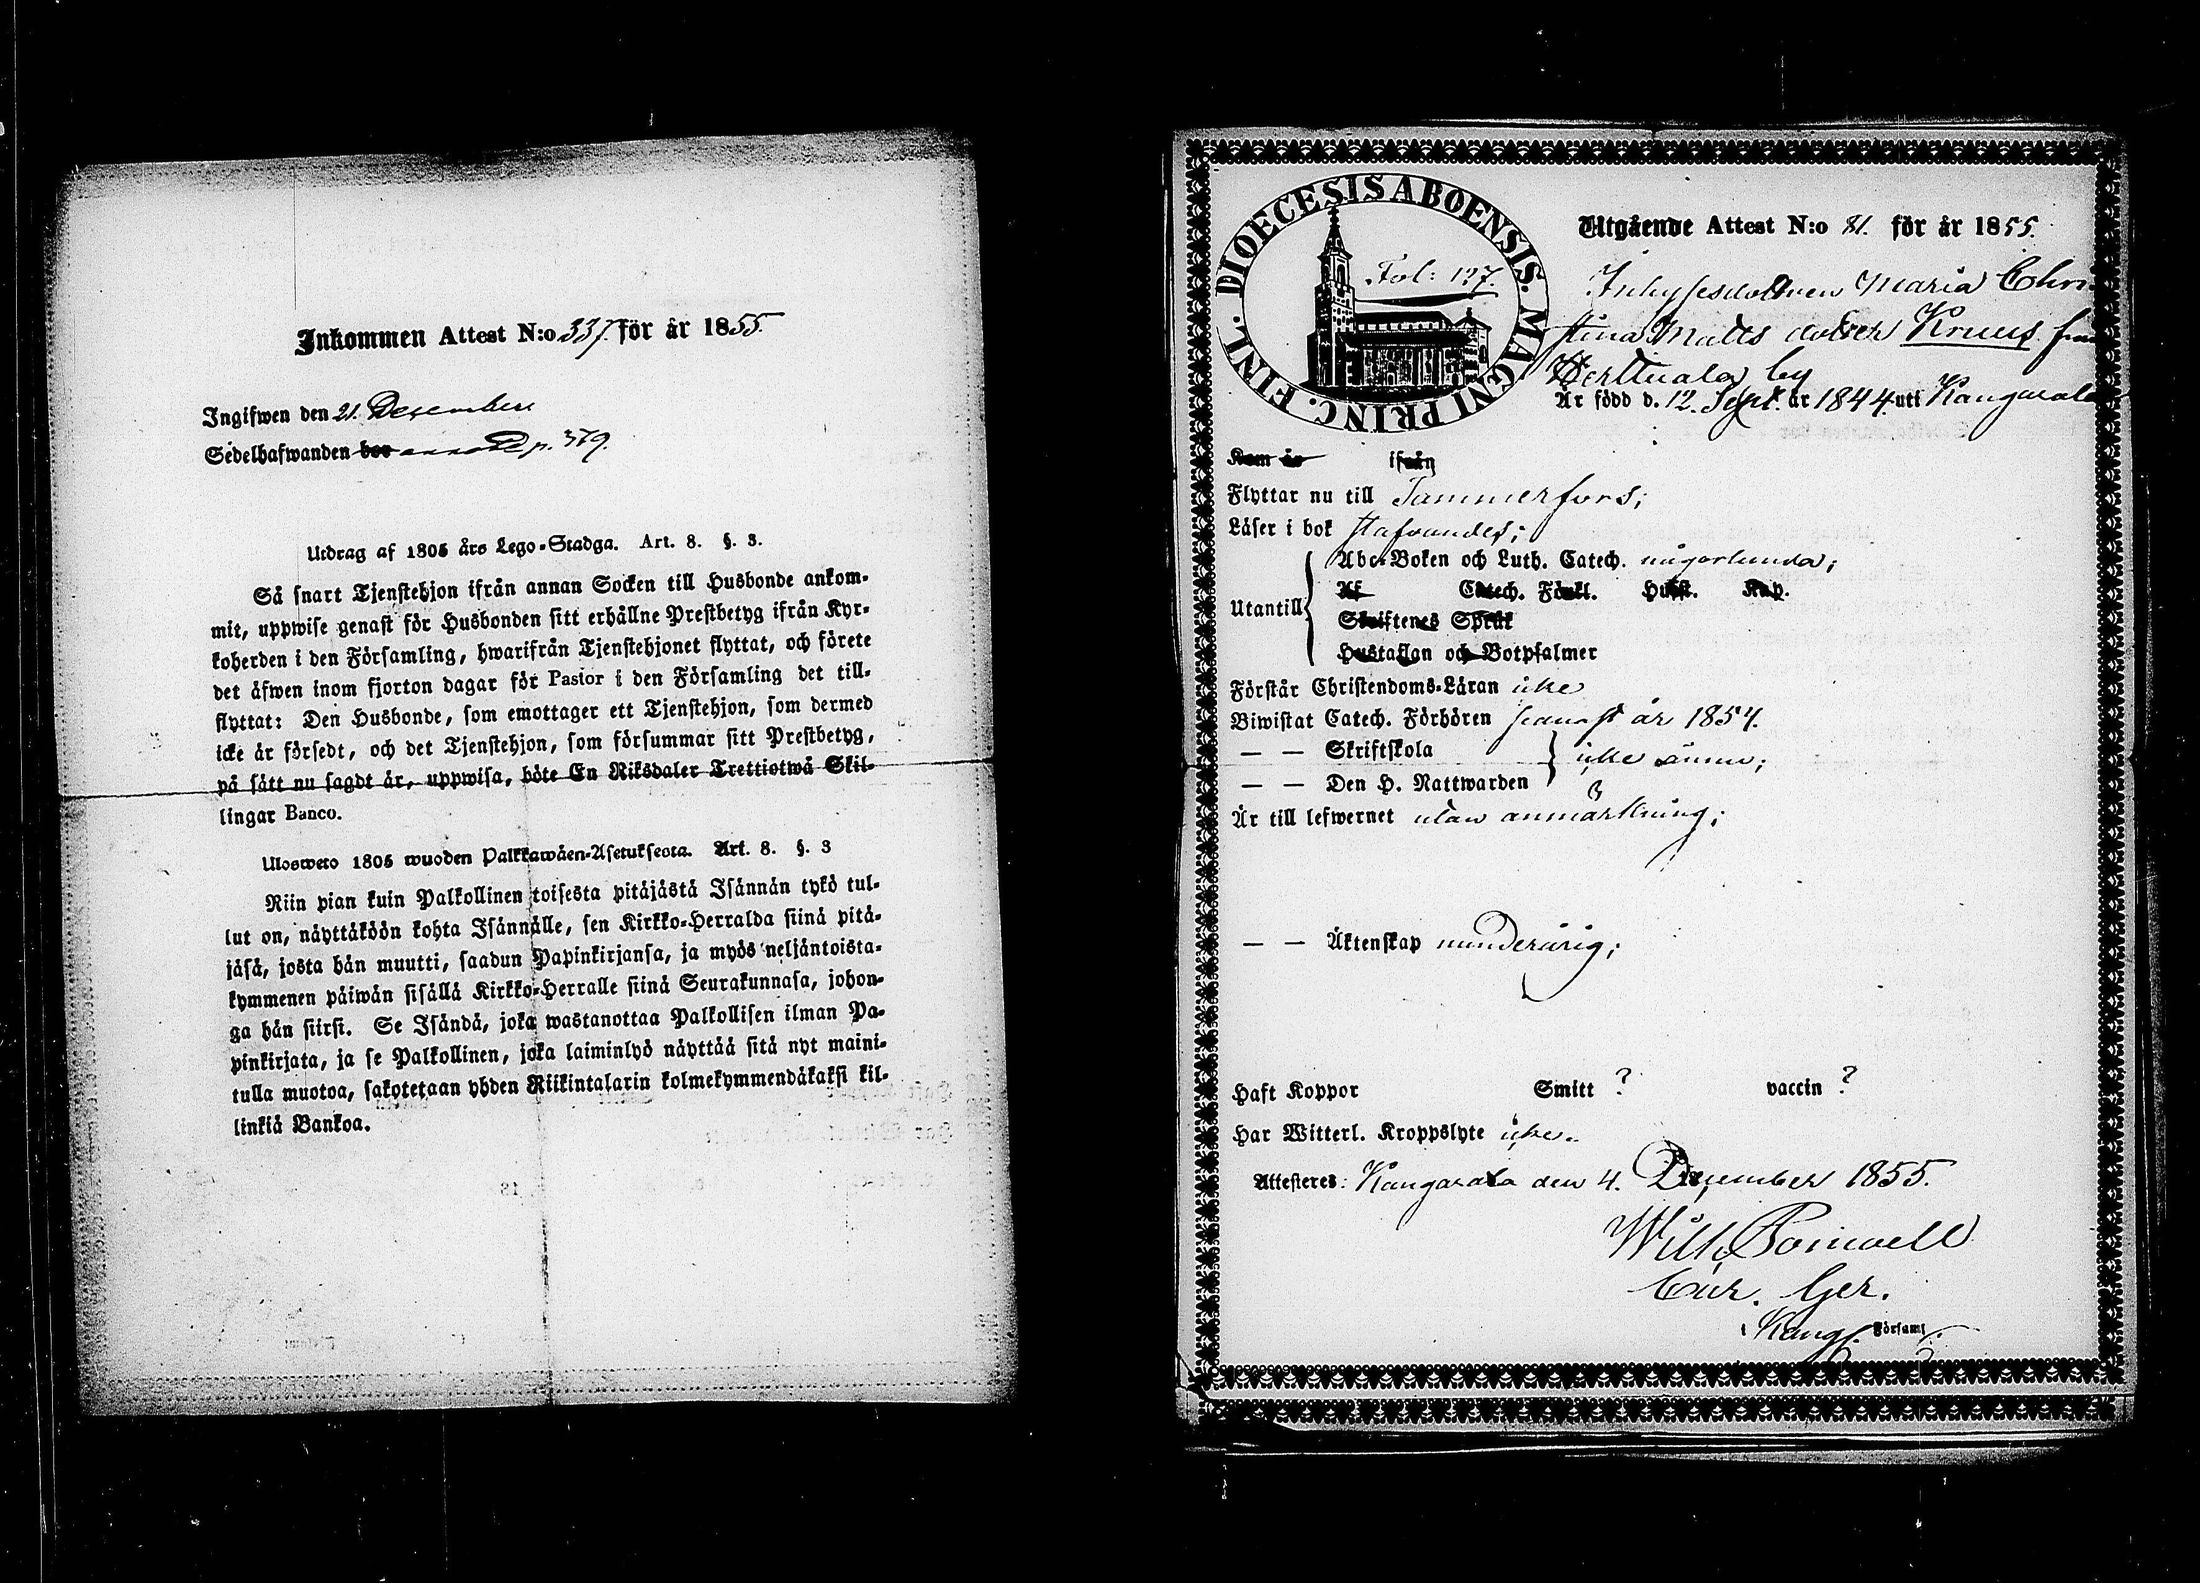 Inkommen Attest N:o 337. för år 1855.
Ingifwen den 21. December
Sedelhafwanden bor annot. p. 379.
Utdrag af 1805 års Lego-Stadga. Art. 8. §. 3.
Så snart Tjenstehjon ifrån annan Socken till Husbonde ankom-
mit, uppwise genast för Husbonden sitt erhållne Prestbetyg ifrån Kyr-
koherden i den Församling, hwarifrån Tjenstehjonet flyttat, och förete
det äfwen inom fjorton dagar för Pastor i den Församling det till-
flyttat: Den Husbonde, som emottager ett Tjenstehjon, som dermed
icke är försedt, och det Tjenstehjon, som försummar sitt Prestbetyg,
på sätt nu sagdt är, uppwisa, böte En Riksdaler Trettiotwå Skil-
lingar Banco.
Ulosweto 1805 wuoden Palkkawäen-Asetuksesta. Art. 8. §. 3
Niin pian kuin Palkollinen toisesta pitäjästä Isännän tykö tul-
lut on, näyttäköön kohta Isännälle, sen Kirkko-Herralda siinä pitä-
jäsä, josta hän muutti, saadun Papinkirjansa, ja myös neljäntoista-
kymmenen päiwän sisällä Kirkko-Herralle siinä Seurakunnasa, johon-
ga hän siirsi. Se Isändä, joka wastanottaa Palkollisen ilman Pa-
pinkirjata, ja se Palkollinen, joka laiminlyö näyttää sitä nyt maini-
tulla muotoa, sakotetaan yhden Riikintalarin kolmekymmendäkaksi kil-
linkiä Bankoa.
DIOECESIS ABOENSIS. MAGNI PRINC. FINL.
Fol: 127.
Utgående Attest N:o 81. för år 1855.
Inhysesdottren Maria Chri
stina Matts dotter Kruus från
Herttuala by
Är född d. 12. Sept. år 1844. uti Kangasala
Kom år ifrån
Flyttar nu till Tammerfors;
Läser i bok stafvandes;
Utantill
Abc-Boken och Luth. Catech. någorlunda;
Af Catech. Förkl. Hufst. Kap.
Skriftenes Språk
Hustaflan och Botpsalmer
Förstår Christendoms-Läran icke
Biwistat Catech. Förhören senast år 1854.
— — Skriftskola
— — Den H. Nattwarden
icke ännu;
Är till lefwernet utan anmärkning;
— — Äktenskap minderårig;
Haft Koppor Smitt ? vaccin ?
Har Witterl. Kroppslyte icke.
Attesteres: Kangasala den 4. December 1855.
Wilh.
Cur. Ger.
i Kang. Församl.